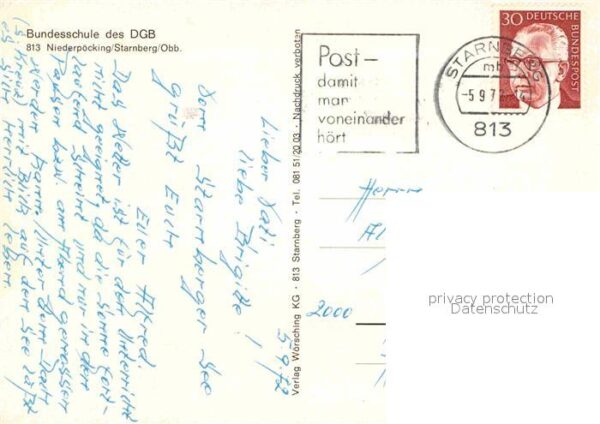 Bundesschule des DGB
813 Niederpöcking/Starnberg/Obb.
5.9.72
Lieber Vati !
liebe Brigitte !
Vom Starnberger See
grüßt Euch
Euer Alfred.
Das Wetter ist für den Unterricht
nicht geeignet, da die Sonne fort-
laufend scheint und nur in den
Pausen bzw. am Abend genossen
werden kann. Unter dem Dach
mit Blick auf den See läßt
es sich herrlich leben.
Verlag Wörsching KG · 813 Starnberg · Tel. 081 51 20 03 · Nachdruck verboten
Post –
damit
man
voneinander
hört
STARNBERG
mb
-5.9.7
813
30 DEUTSCHE
BUNDESPOST
Herrn
2000
privacy protection
Datenschutz